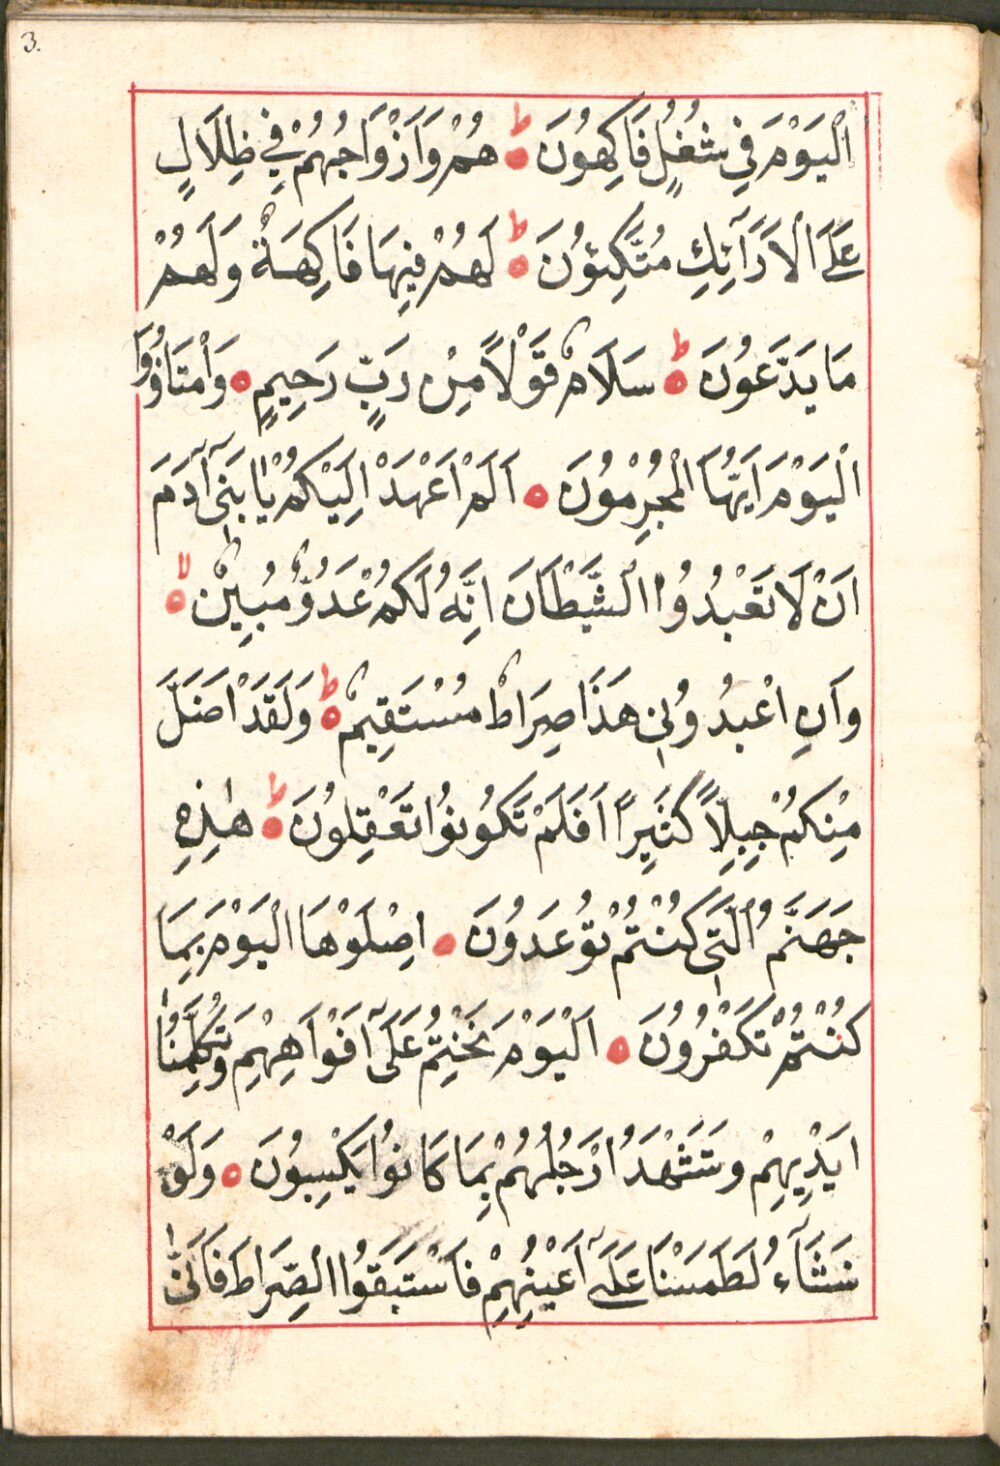 3.
اَلْيَوْمَ فِي شُغُلٍ فَاكِهُونَ ط هُمْ وَاَزْوَاجُهُمْ فِي ظِلَالٍ
عَلَى الْاَرَآئِكِ مُتَّكِؤُنَ ط لَهُمْ فِيهَا فَاكِهَةٌ وَلَهُمْ
مَا يَدَّعُونَ ط سَلَامٌ قَوْلًا مِنْ رَبٍّ رَحِيمٍ وَامْتَازُوا
الْيَوْمَ اَيُّهَا الْمُجْرِمُونَ اَلَمْ اَعْهَدْ اِلَيْكُمْ يٰا بَنِىٓ آدَمَ
اَنْ لَا تَعْبُدُوا الشَّيْطَانَ اِنَّهُ لَكُمْ عَدُوٌّ مُبِينٌ لا
وَاَنِ اعْبُدُونِى هَذَا صِرَاطٌ مُسْتَقِيمٌ ط وَلَقَدْ اَضَلَّ
مِنْكُمْ جِبِلًّا كَثِيرًا اَفَلَمْ تَكُونُوا تَعْقِلُونَ ط هٰذِهِ
جَهَنَّمُ الَّتِى كُنْتُمْ تُوعَدُونَ اِصْلَوْهَا الْيَوْمَ بِمَا
كُنْتُمْ تَكْفُرُونَ اَلْيَوْمَ نَخْتِمُ عَلَىٓ اَفْوَاهِهِمْ وَتُكَلِّمُنَا
اَيْدِيهِمْ وَتَشْهَدُ اَرْجُلُهُمْ بِمَا كَانُوا يَكْسِبُونَ وَلَوْ
نَشَآءُ لَطَمَسْنَا عَلَىٓ اَعْيُنِهِمْ فَاسْتَبَقُوا الصِّرَاطَ فَاَنّٰى